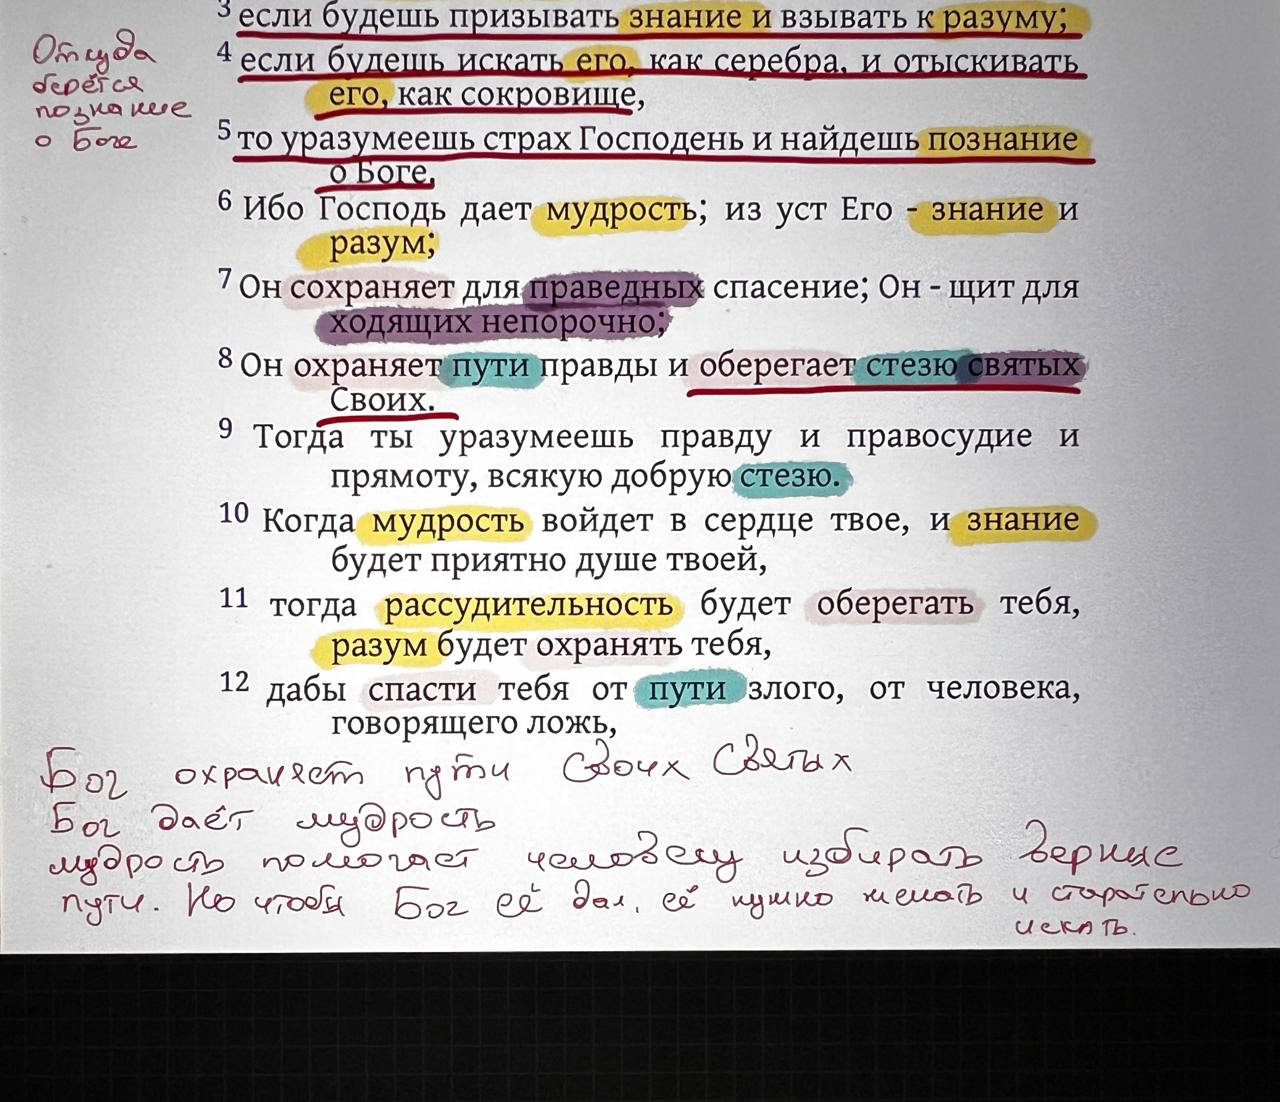 3 если будешь призывать знание и взывать к разуму;
4 если будешь искать его, как серебра, и отыскивать
его, как сокровище,
5 то уразумеешь страх Господень и найдешь познание
о Боге.
6 Ибо Господь дает мудрость; из уст Его - знание и
разум;
7 Он сохраняет для праведных спасение; Он - щит для
ходящих непорочно;
8 Он охраняет пути правды и оберегает стезю святых
Своих.
9 Тогда ты уразумеешь правду и правосудие и
прямоту, всякую добрую стезю.
10 Когда мудрость войдет в сердце твое, и знание
будет приятно душе твоей,
11 тогда рассудительность будет оберегать тебя,
разум будет охранять тебя,
12 дабы спасти тебя от пути злого, от человека,
говорящего ложь,
Откуда
берётся
познание
о Боге
Бог охраняет пути Своих Святых
Бог даёт мудрость
мудрость помогает человеку избирать верные
пути. Но чтобы Бог её дал, её нужно желать и старательно
искать.